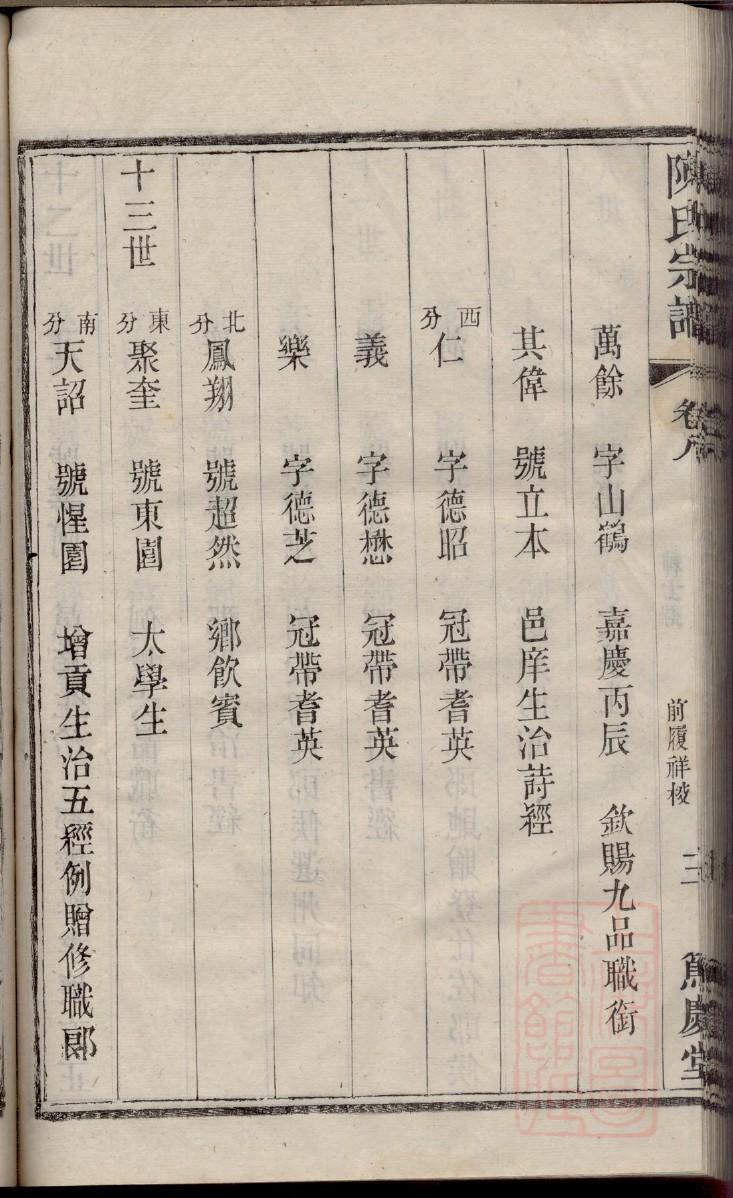 陳氏宗譜 卷八 前履祥梭 三 篤慶堂
萬餘 字山鶴 嘉慶丙辰 欽賜九品職銜
其偉 號立本 邑庠生治詩經
西分 仁 字德昭 冠帶耆英
義 字德懋 冠帶耆英
樂 字德芝 冠帶耆英
北分 鳳翔 號超然 鄉飲賓
十三世 東分 聚奎 號東園 太學生
南分 天詔 號惺園 增貢生治五經例贈修職郎